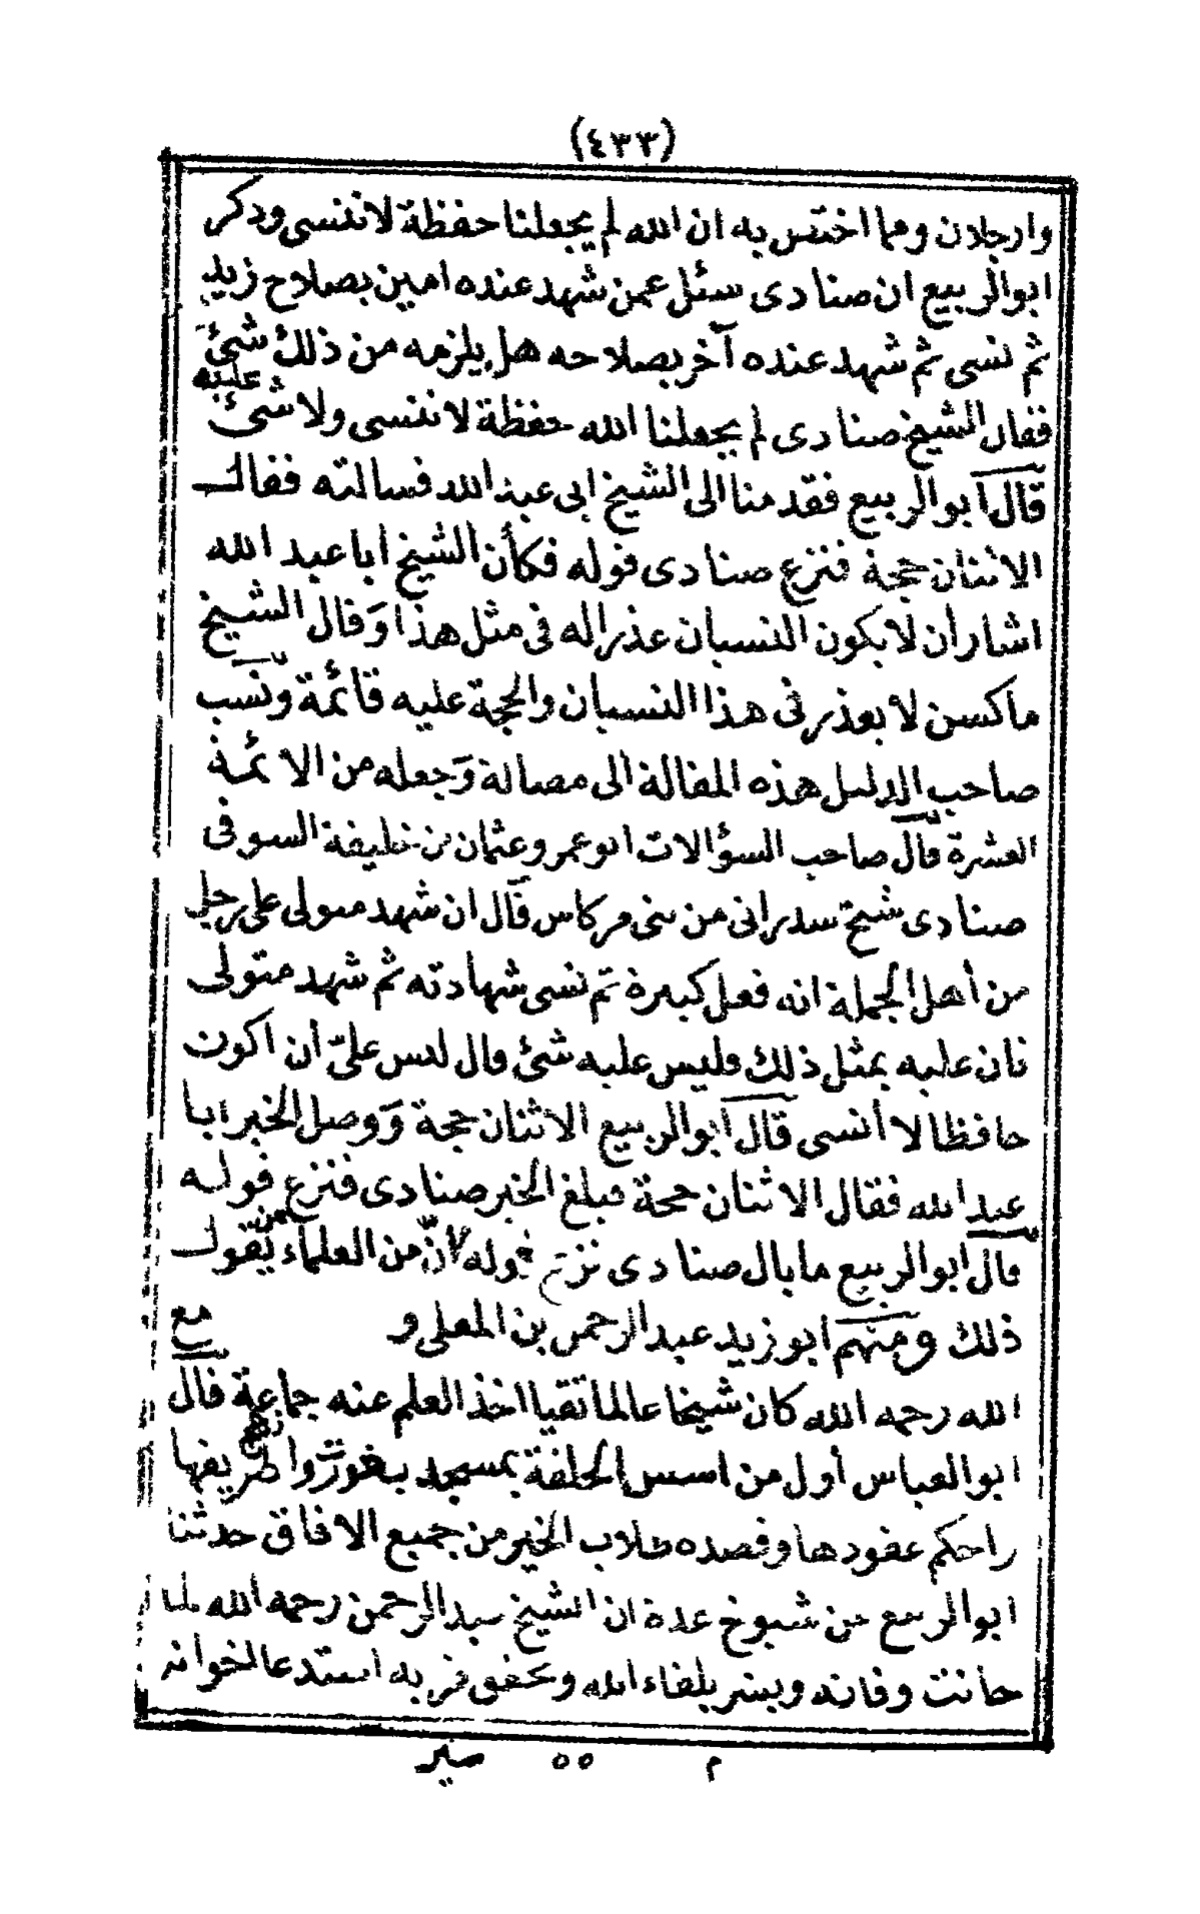 (٤٣٣)
وارجلان ومما اختص به ان الله لم يجعلنا حفظة لا ننسى وذكر
ابوالربيع ان صنادى سئل عمن شهد عنده امين بصلاح زيد
ثم نسى ثم شهد عنده آخر بصلاحه هل يلزمه من ذلك شئ
فقال الشيخ صنادى لم يجعلنا الله حفظة لا ننسى ولا شئ عليه
قال ابوالربيع فقدمنا الى الشيخ ابى عبد الله فسالته فقال
الاثنان حجة فنزع صنادى قوله فكأن الشيخ ابا عبد الله
اشار أن لا يكون النسيان عذرا له فى مثل هذا وقال الشيخ
ماكسن لا يعذر فى هذا النسيان والحجة عليه قائمة ونسب
صاحب الدليل هذه المقالة الى مصالة وجعله من الائمة
العشرة قال صاحب السؤالات ابو عمرو عثمان بن خليفة السوفى
صنادى شيخ سدرانى من بنى مركاس قال ان شهد متولى على رجل
من أهل الجملة انه فعل كبيرة ثم نسى شهادته ثم شهد متولى
ثان عليه بمثل ذلك فليس عليه شئ قال ليس علىّ أن اكون
حافظا لا أنسى قال ابوالربيع الاثنان حجة ووصل الخبر ابا
عبد الله فقال الاثنان حجة فبلغ الخبر صنادى فنزع قوله
قال ابوالربيع ما بال صنادى نزع قوله لانّ من العلماء من يقول
ذلك ومنهم ابو زيد عبد الرحمن بن المعلى و مع
الله رحمه الله كان شيخا عالما تقيا اخذ العلم عنه جماعة قال
ابو العباس أول من اسس الحلقة بمسجد تغورت واطريفها
راحكم عقودها وقصده طلاب الخير من جميع الافاق حدثنا
ابوالربيع عن شيوخ عدة ان الشيخ عبد الرحمن رحمه الله لما
حانت وفاته وبشر بلقاء الله وتحقق قربه استدعا اخوانه
م ٥٥ سير